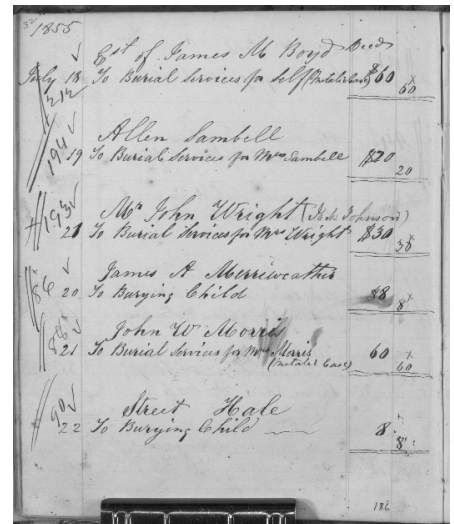 1855
Est of James M Boyd Decd
July 18 To Burial Services for Self (Metalic Case) $60 60
212
Allen Sambell
194
19 To Burial Services for Mrs Sambell $20 20
193
Mr John Wright (Jas Johnson)
21 To Burial Services for Mrs Wright $30 30
James A Merriweather
86
20 To Burying Child $8 8
John W Morris
88
21 To Burial Services for Mrs Morris 60 60
(Metalic Case)
Street Hale
90
22 To Burying Child 8 8
186